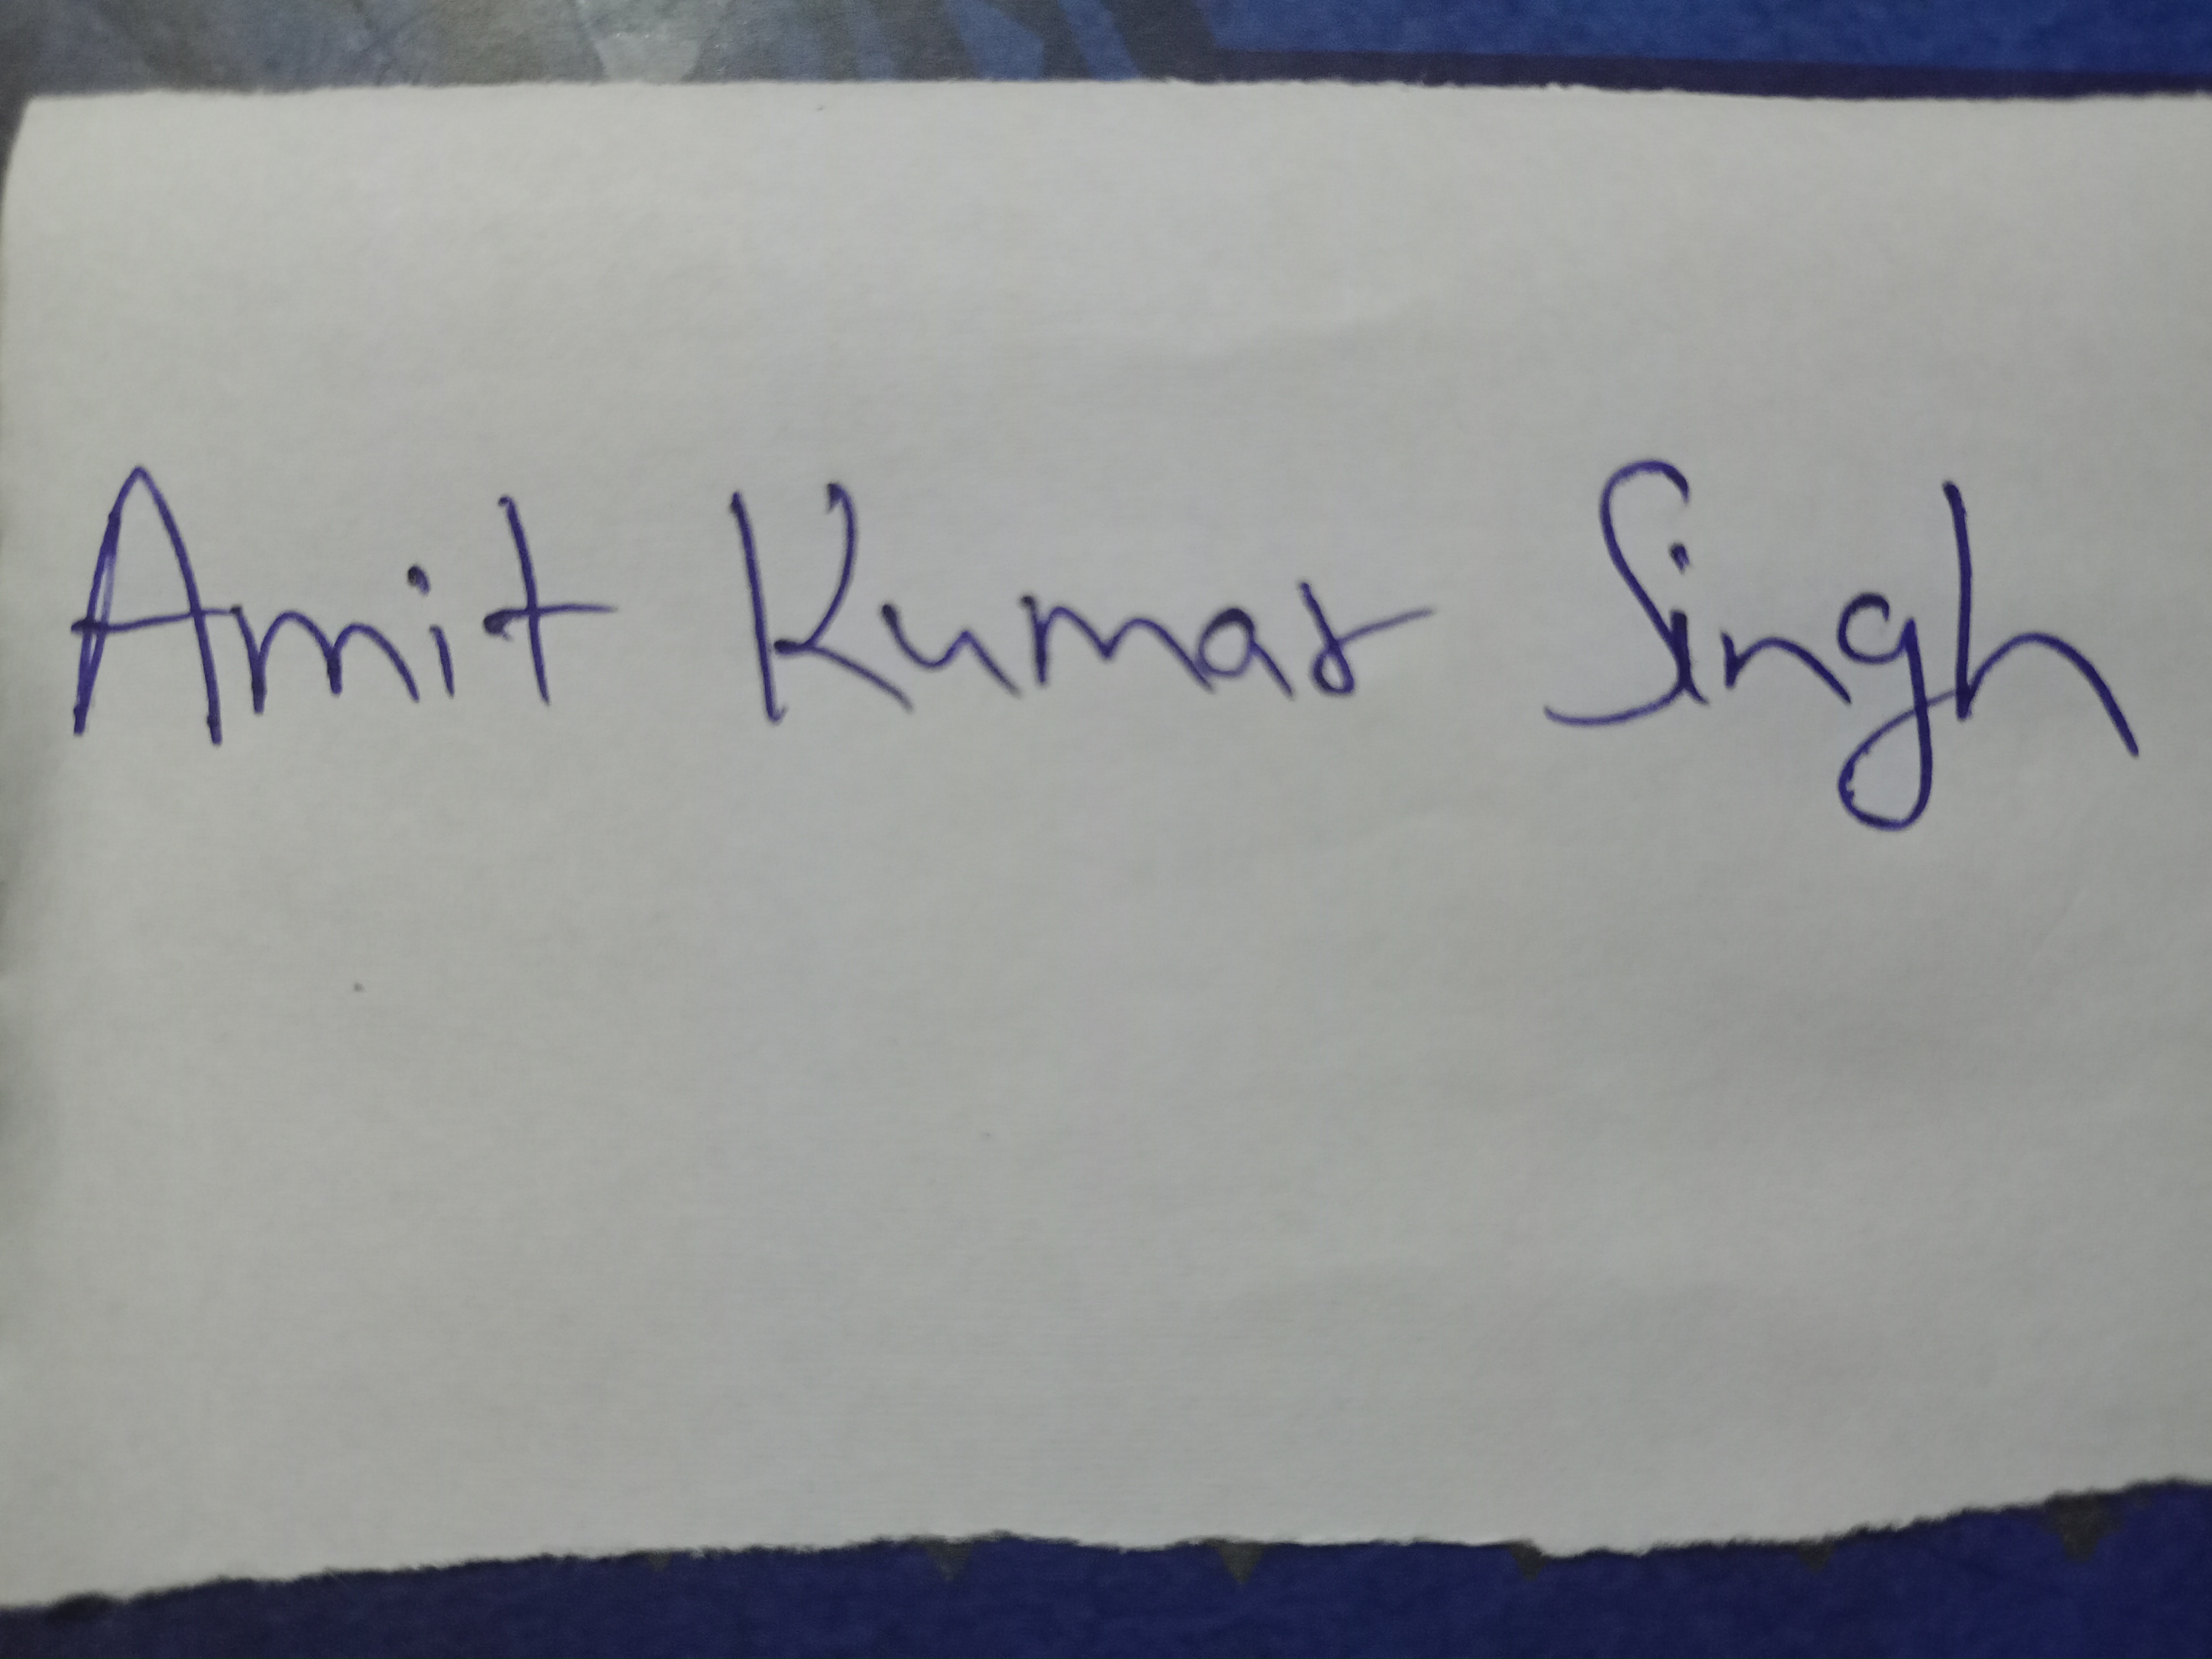 Amit Kumar Singh